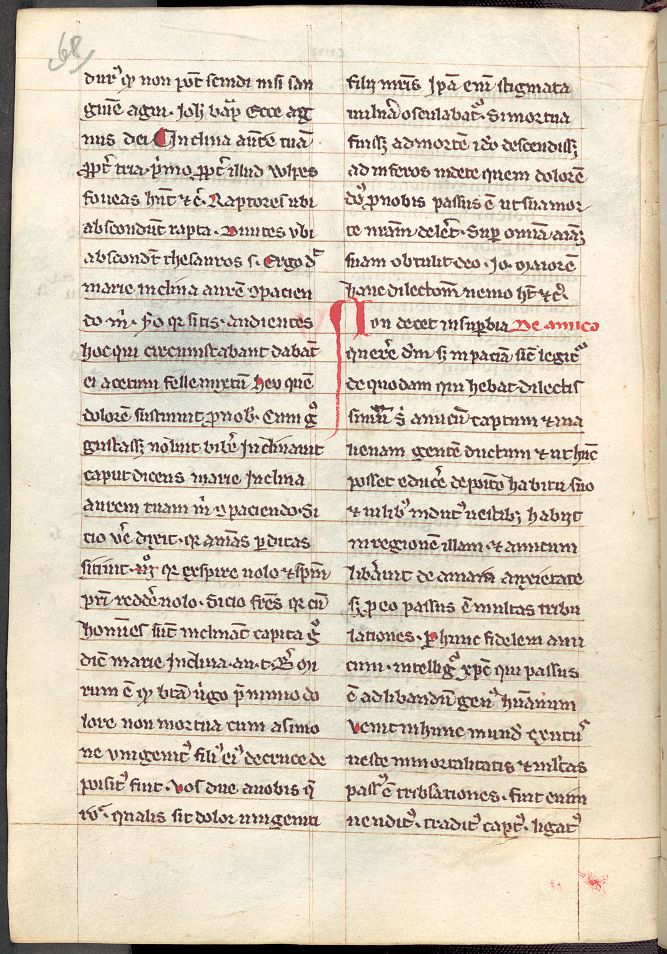 68
dur᷒ ꝙ non pōt scindi nisi san
guīe agni. Joh̄ bap̄. Ecce ag
nus dei. Inclina aurē tuā
ꝓpt̄ tria. p̄mo ꝓpt̄ illud vulpes
foueas hn̄t ⁊ c̄. Raptores ubi
abscondūt rapta. Diuites vbi
abscondūt thesauros s. Ergo
marie inclina aurē
hoc qui circumstabant dabāt
ei acetum felle mixtū heu quē
dolorē sustinuit ꝓ nob. Cum
gustass; noluit bibē Inclinauit
caput dicens marie Inclina
aurem tuam m̄ ꝯpaciendo. Si
tio vē dixit. qr aīas ꝑditas
sitiunt. qr exspire nolo ⁊ sp̄m
pr̄i reddē nolo. Sicio frēs qr cū
hoīnes sūt inclināt capita
dic̄ marie Inclina. au. t.
rum ē ꝙ btā u̇go p̄ nimio do
lore non mortua cum a sumo
ne vnigenit᷒ fili᷒ ei᷒ de cruce de
posit᷒ fuit. Vos due a nobis
qualis sit dolor unigeniti
filij mr̄is ipā eni᷒ stigmata
uulnā osculabat᷒. Si mortua
fuiss; ad mortē ido descendiss;
ad inferos uidete quem dolorē
ꝓ nobis passus ē ut sua mor
te nrām delēt. Suꝑ omīa aīaʒ
suam obtulit deo. Jo. Maiorē
hanc dilectōm nemo ht̄ ⁊ c̄.
Non decet in suꝑbia De amico
querē dm̄ s; in paciā sic̄ legit᷒
de quodam qui hēbat dilectis
simū s̄ amicū captum ⁊ in a
lienam gentē ductum ⁊ ut hūc
posset educē deposito habitu suo
⁊ uilib᷒ indut᷒ uestib; habijt
in regionē illam. ⁊ amicum
libauit de amara anxietate
s; ꝓ eo passus ē multas tribu
lationes. Per hunc fidelem ami
cum. intelligit᷒ xp̄c qui passus
ē ad libandū gen᷒ hūanum
venit in hunc mund̄ exut᷒
ueste inmortalitatis ⁊ multas
pass᷒ ē tribulationes. fuit enim
uendit᷒. tradit᷒ capt᷒. ligat᷒